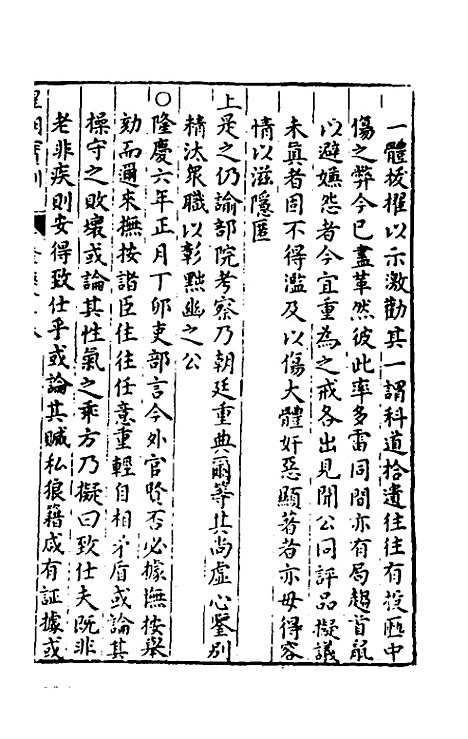 一體拔擢以示激勸其一謂科道拾遺往往有投匭中
傷之弊今已盡革然彼此率多雷同間亦有局趨首鼠
以避嫌怨者今宜重為之戒各出見聞公同評品擬議
未眞者固不得濫及以傷大體奸惡顯著者亦毋得容
情以滋隱匿
上是之仍諭部院考察乃朝廷重典爾等其尚虛心鑒別
精汰眾職以彰黜幽之公
○隆慶六年正月丁卯吏部言今外官賢否必據撫按舉
劾而邇來撫按諸臣往往任意重輕自相矛盾或論其
操守之敗壞或論其性氣之乖方乃擬曰致仕夫既非
老非疾則安得致仕乎或論其贓私狼籍咸有証據或